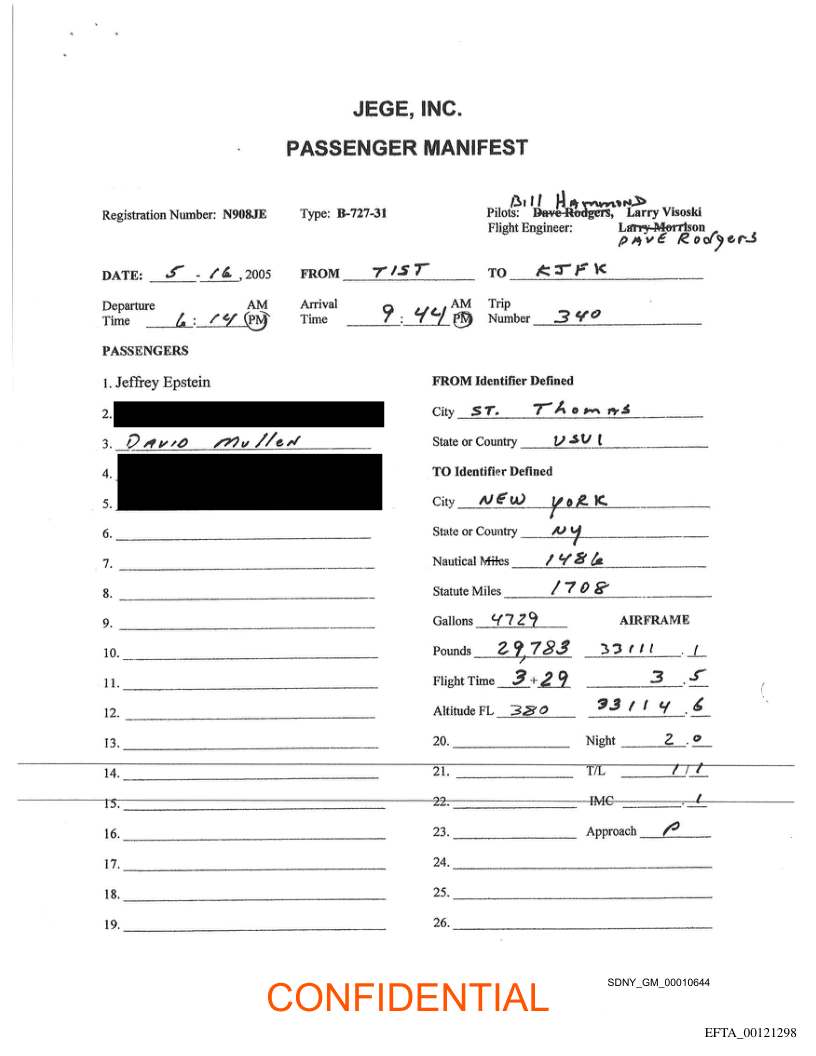 JEGE, INC.
PASSENGER MANIFEST
Bill Hammond
Registration Number: N908JE Type: B-727-31 Pilots: Dave Rodgers, Larry Visoski
Flight Engineer: Larry Morrison
Dave Rodgers
DATE: 5 - 16, 2005 FROM TIST TO KJFK
Departure Time 6:14 AM PM Arrival Time 9:44 AM PM Trip Number 340
PASSENGERS
1. Jeffrey Epstein FROM Identifier Defined
2. City ST. Thomas
3. David Mullen State or Country USVI
4. TO Identifier Defined
5. City NEW YORK
6. State or Country NY
7. Nautical Miles 1486
8. Statute Miles 1708
9. Gallons 4729 AIRFRAME
10. Pounds 29,783 33111.1
11. Flight Time 3+29 3.5
12. Altitude FL 380 33114.6
13. 20. Night 2.0
14. 21. T/L 1/1
15. 22. IMC .1
16. 23. Approach P
17. 24.
18. 25.
19. 26.
SDNY_GM_00010644
CONFIDENTIAL
EFTA_00121298